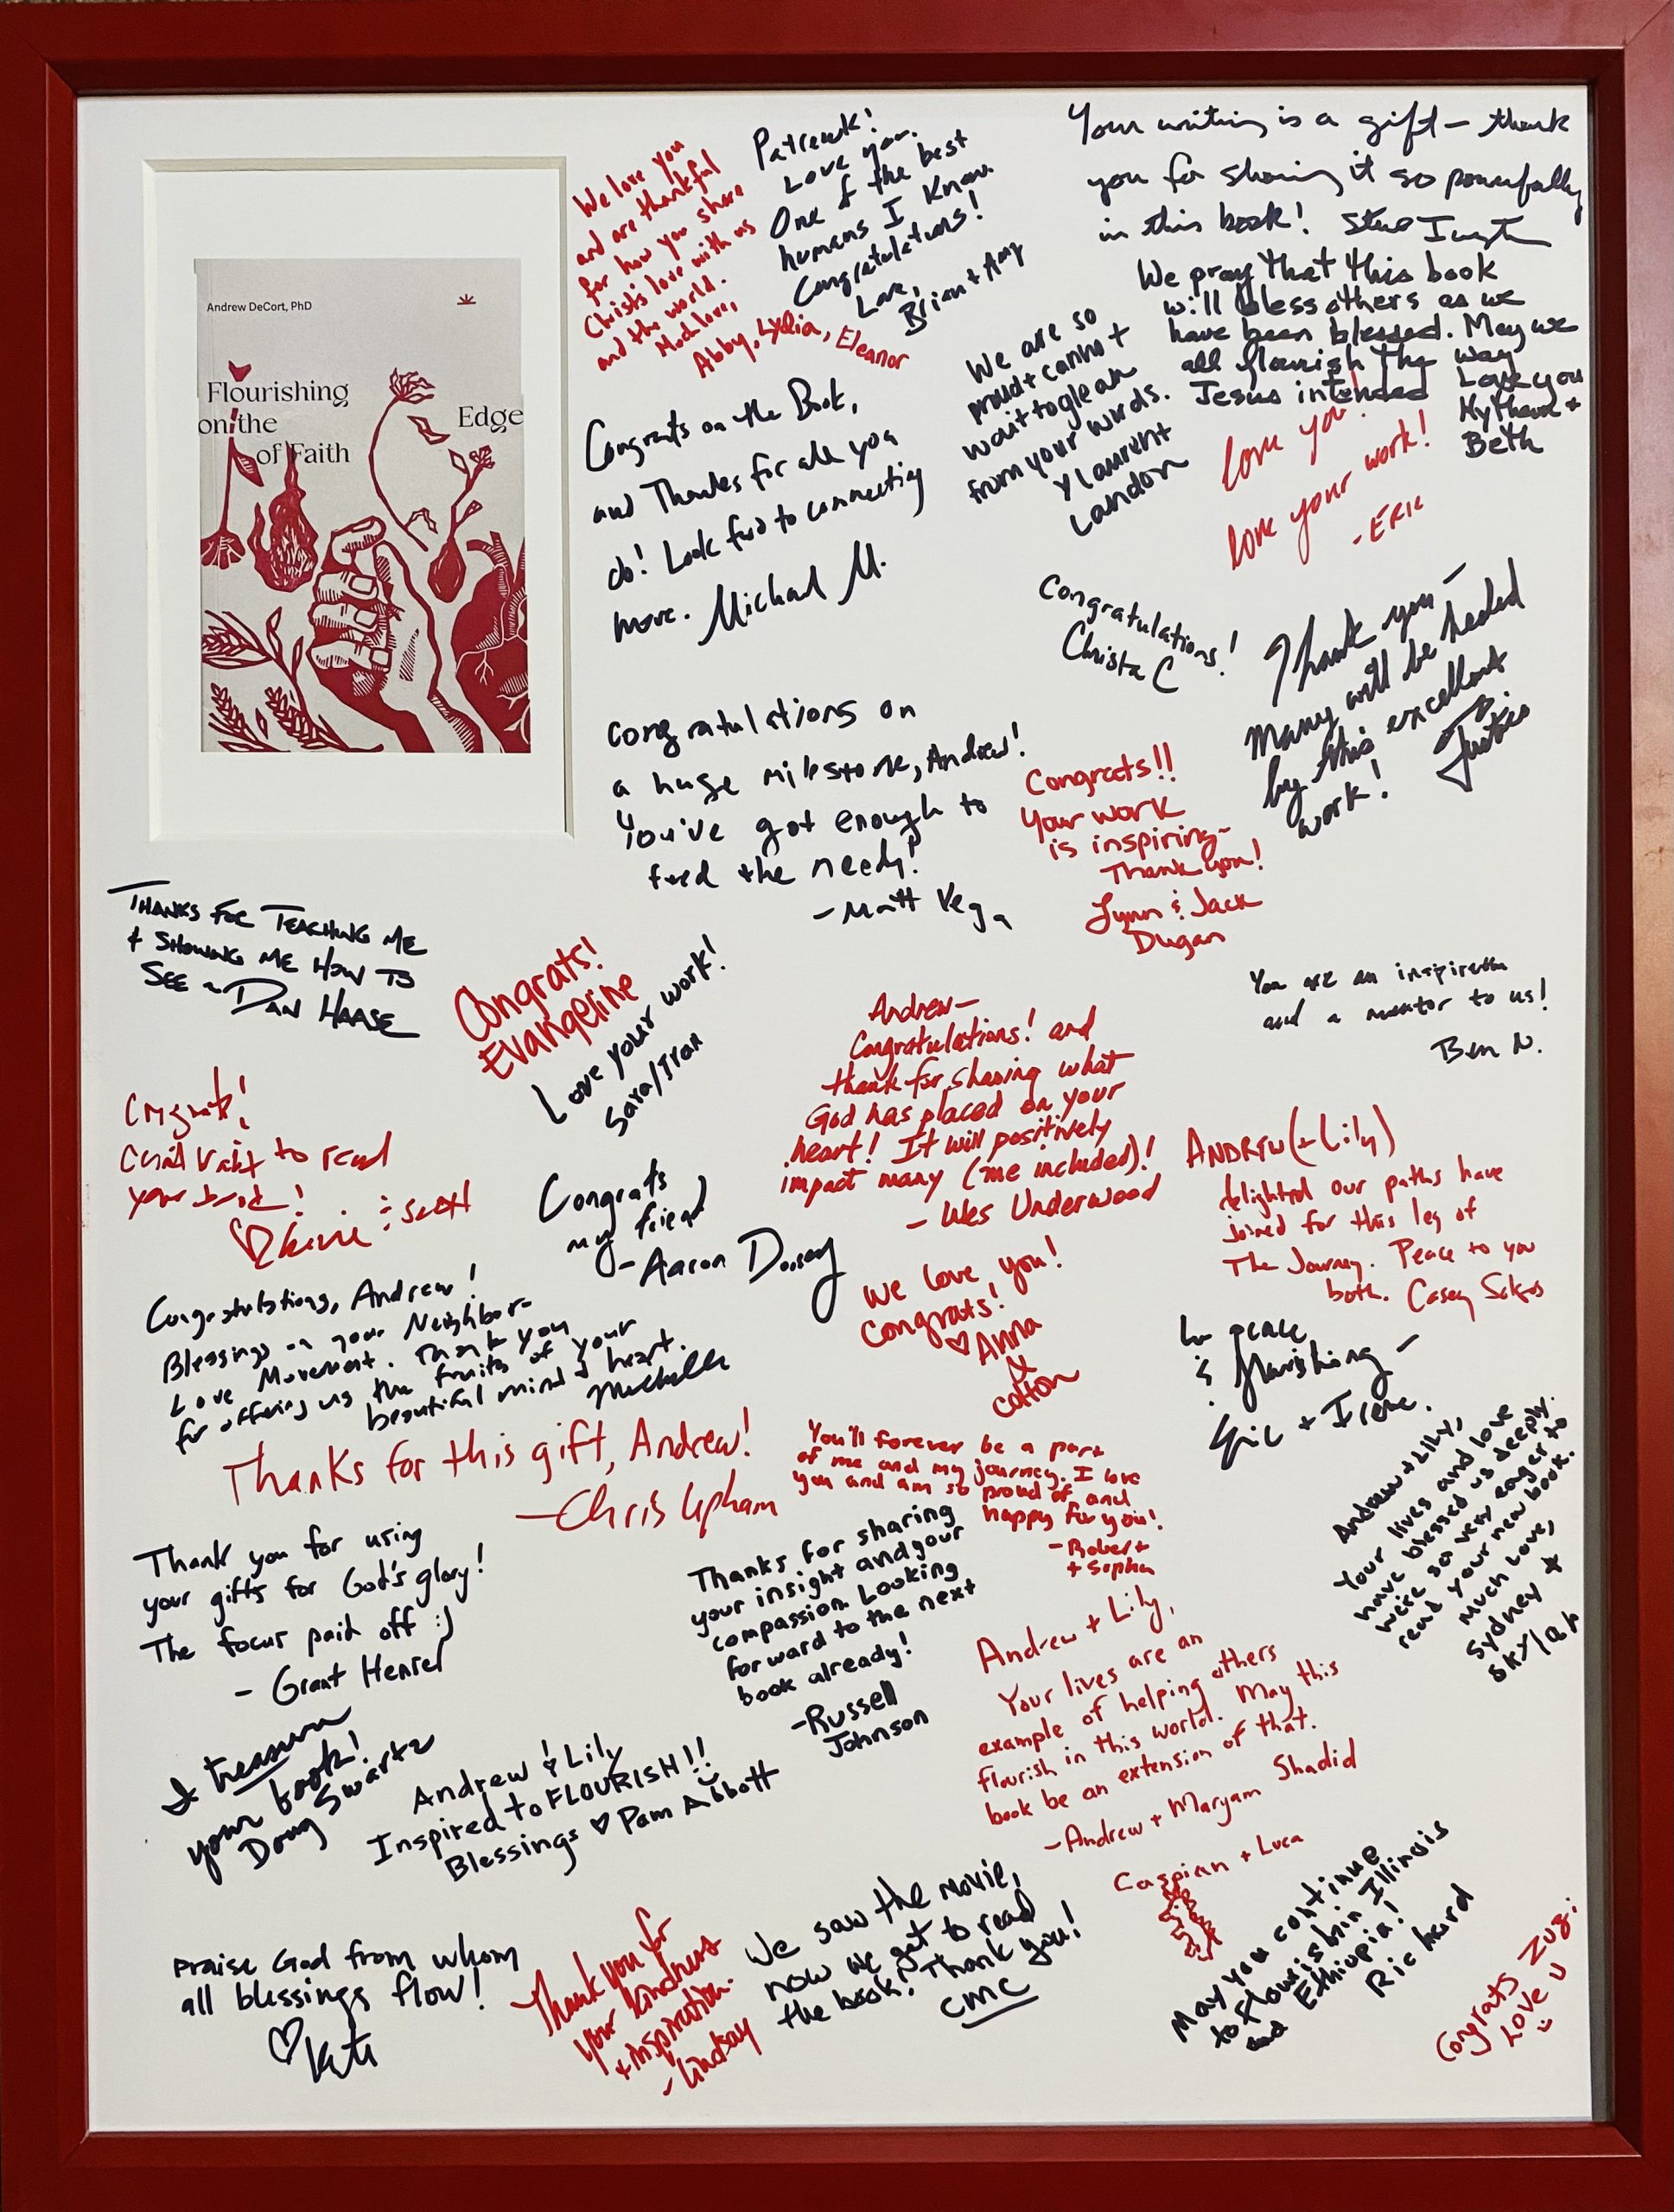 Andrew DeCort, PhD
Flourishing
on the Edge
of Faith
We love you
and are thankful
for how you share
Christs love with us
and the world.
Much love,
Abby, Lydia, Eleanor
Love you.
One of the best
humans I know.
Congratulations!
Love,
Brian + Amy
Your writing is a gift - thank
you for sharing it so powerfully
in this book!
We pray that this book
will bless others as we
have been blessed. May we
all flourish the way
Jesus intended
Love you
+
Beth
We are so
proud + cannot
wait to glean
from your words.
Landon
Love you!
Love your work!
- Eric
Congrats on the Book,
and Thanks for all you
do! Look fwd to connecting
more. Michael M.
Congratulations!
Christa C
Thank you -
Many will be healed
by this excellent
work!
Congratulations on
a huge milestone, Andrew!
You've got enough to
feed the needy!
- Matt Vega
Congrats!!
Your work
is inspiring-
Thank you!
Lynn & Jack
Dugan
THANKS FOR TEACHING ME
+ SHOWING ME HOW TO
SEE ~ DAN HAASE
Congrats!
Evangeline
Love your work!
You are an inspiration
and a mentor to us!
Ben N.
Andrew-
Congratulations! and
thank for sharing what
God has placed on your
heart! It will positively
impact many (me included)!
- Wes Underwood
Congrats!
to read
your book!
Congrats
my friend
- Aaron
ANDREW (+ Lily)
delighted our paths have
joined for this leg of
The Journey. Peace to you
both. Casey
We love you!
Congrats!
♡ Anna
&
Colton
Congratulations, Andrew!
Blessings on your Neighbor-
Love Movement. Thank you
for offering us the fruits of your
beautiful mind & heart.
Michelle
peace
& flourishing -
Eric + Irene.
Thanks for this gift, Andrew!
- Chris Upham
You'll forever be a part
of me and my journey. I love
you and am so proud of and
happy for you!
- Robert
+ Sophia
Andrew + Lily,
Your lives and love
have blessed us deeply.
We're so very eager to
read your new book.
Much Love,
Sydney +
Skylar
Thank you for using
your gifts for God's glory!
The focus paid off :)
- Grant Hensel
Thanks for sharing
your insight and your
compassion. Looking
forward to the next
book already!
- Russell
Johnson
Andrew + Lily,
Your lives are an
example of helping others
flourish in this world. May this
book be an extension of that.
- Andrew + Maryam Shadid
Caspian + Luca
I treasure
your book!
Doug Swartz
Andrew & Lily
Inspired to FLOURISH!!
Blessings ♡ Pam Abbott
Praise God from whom
all blessings flow!
♡ Kate
Thank you for
your kindness
+ inspiration.
- Lindsay
We saw the movie,
now we get to read
the book! Thank you!
CMC
May you continue
to flourish in Illinois
and Ethiopia!
Richard
Congrats Zugi
Love U